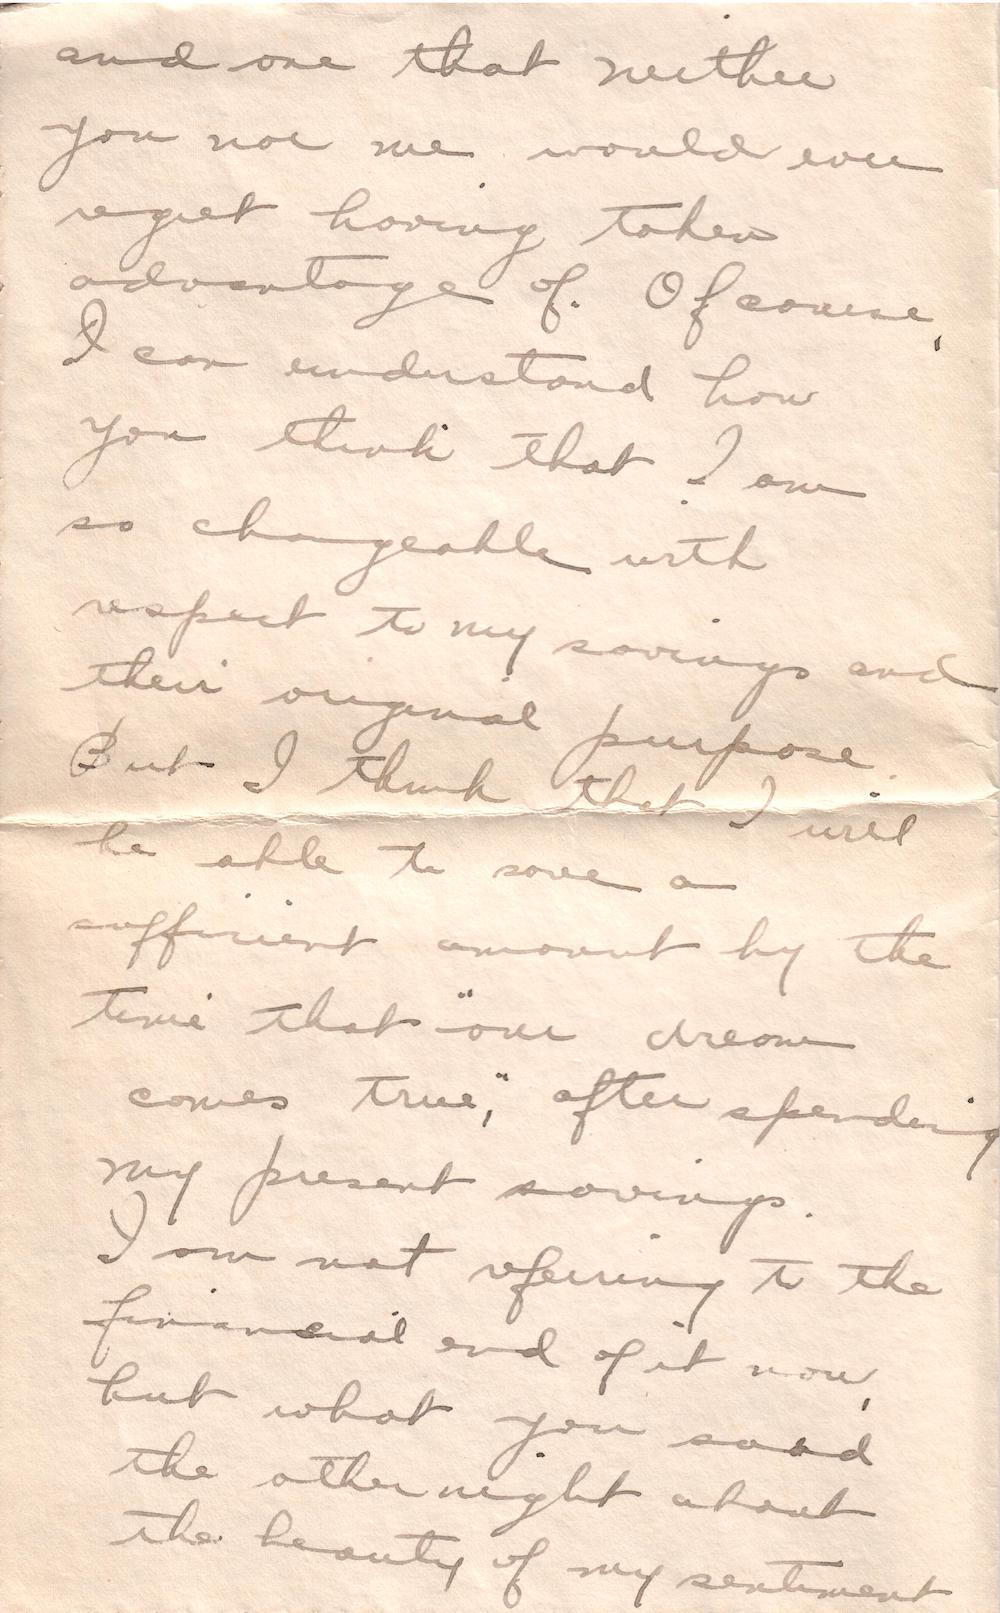 and one that neither
you nor me would ever
regret having taken
advantage of. Of course,
I can understand how
you think that I am
so changeable with
respect to my savings and
their original purpose.
But I think that I will
be able to save a
sufficient amount by the
time that "our dream
comes true", after spending
my present savings.
I am not refering to the
financial end of it now,
but what you said
the other night about
the beauty of my sentiment